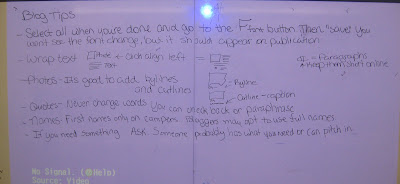 Blog Tips
- Select all when you're done and go to the F font button. Then "save" You
won't see the font change, but it should appear on publication
- Wrap text Photo text ← click align left =
* Paragraphs
* Keep them short online
- Photos - It's good to add bylines
and cutlines
Byline
Cutline - caption
- Quotes - Never change words you can check back or paraphrase
- Names - First names only on campers. Bloggers may opt to use full names
- If you need something. Ask. Someone probably has what you need or can pitch in.
No Signal. (@Help)
Source: Video